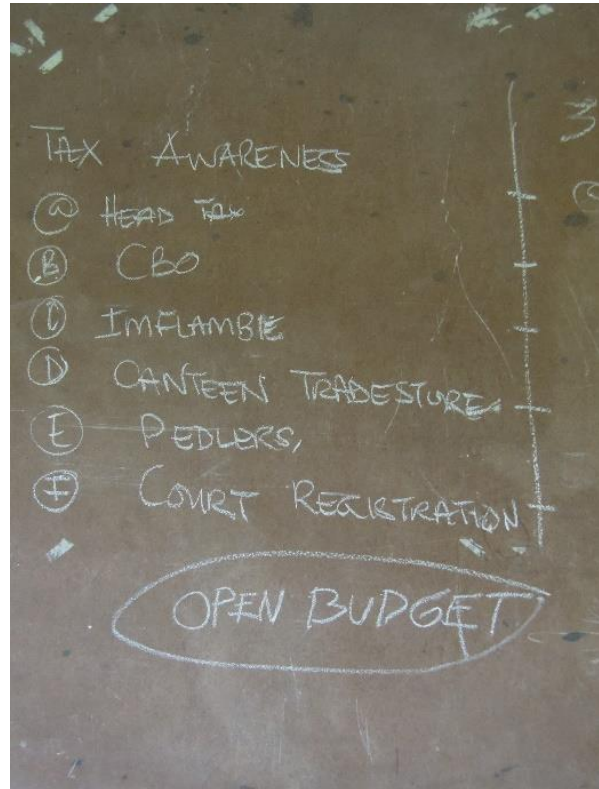 TAX AWARENESS
@ HEAD TAX
B CBO
C IMFLAMBLE
D CANTEEN TRADESTURE
E PEDLERS,
F COURT REGISTRATION
OPEN BUDGET
3